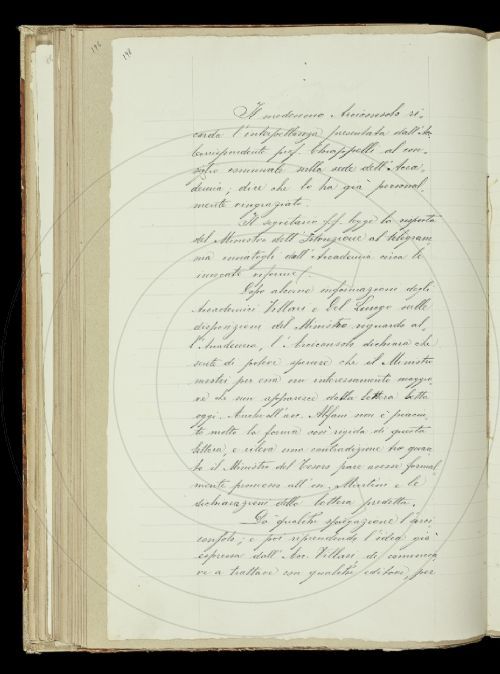 196
198
Il medesimo Arciconsolo ri-
corda l'interpellanza presentata dall'Ac.
Corrispondente prof. Chiappelli al con-
siglio comunale sulla sede dell'Acca-
demia; dice che lo ha già personal-
mente ringraziato.
Il segretario f.f. legge la risposta
del Ministro dell'Istruzione al telegram-
ma inviatogli dall'Accademia circa le
invocate riforme.
Dopo alcune informazioni degli
Accademici Villari e Del Lungo sulle
disposizioni del Ministro riguardo al-
l'Accademia, l'Arciconsolo dichiara che
sente di potere sperare che il Ministro
mostri per essa un interessamento maggio-
re che non apparisce dalla lettera letta
oggi. Anche all'acc. Alfani non è piaciu-
ta molto la forma così rigida di questa
lettera, e rileva una contradizione tra quan-
to il Ministro del Tesoro pare avesse formal-
mente promesso all'on. Martini e le
dichiarazioni della lettera predetta.
Dà qualche spiegazione l'arci-
consolo; e poi riprendendo l'idea già
espressa dall'Acc. Villari di comincia-
re a trattare con qualche editore, per